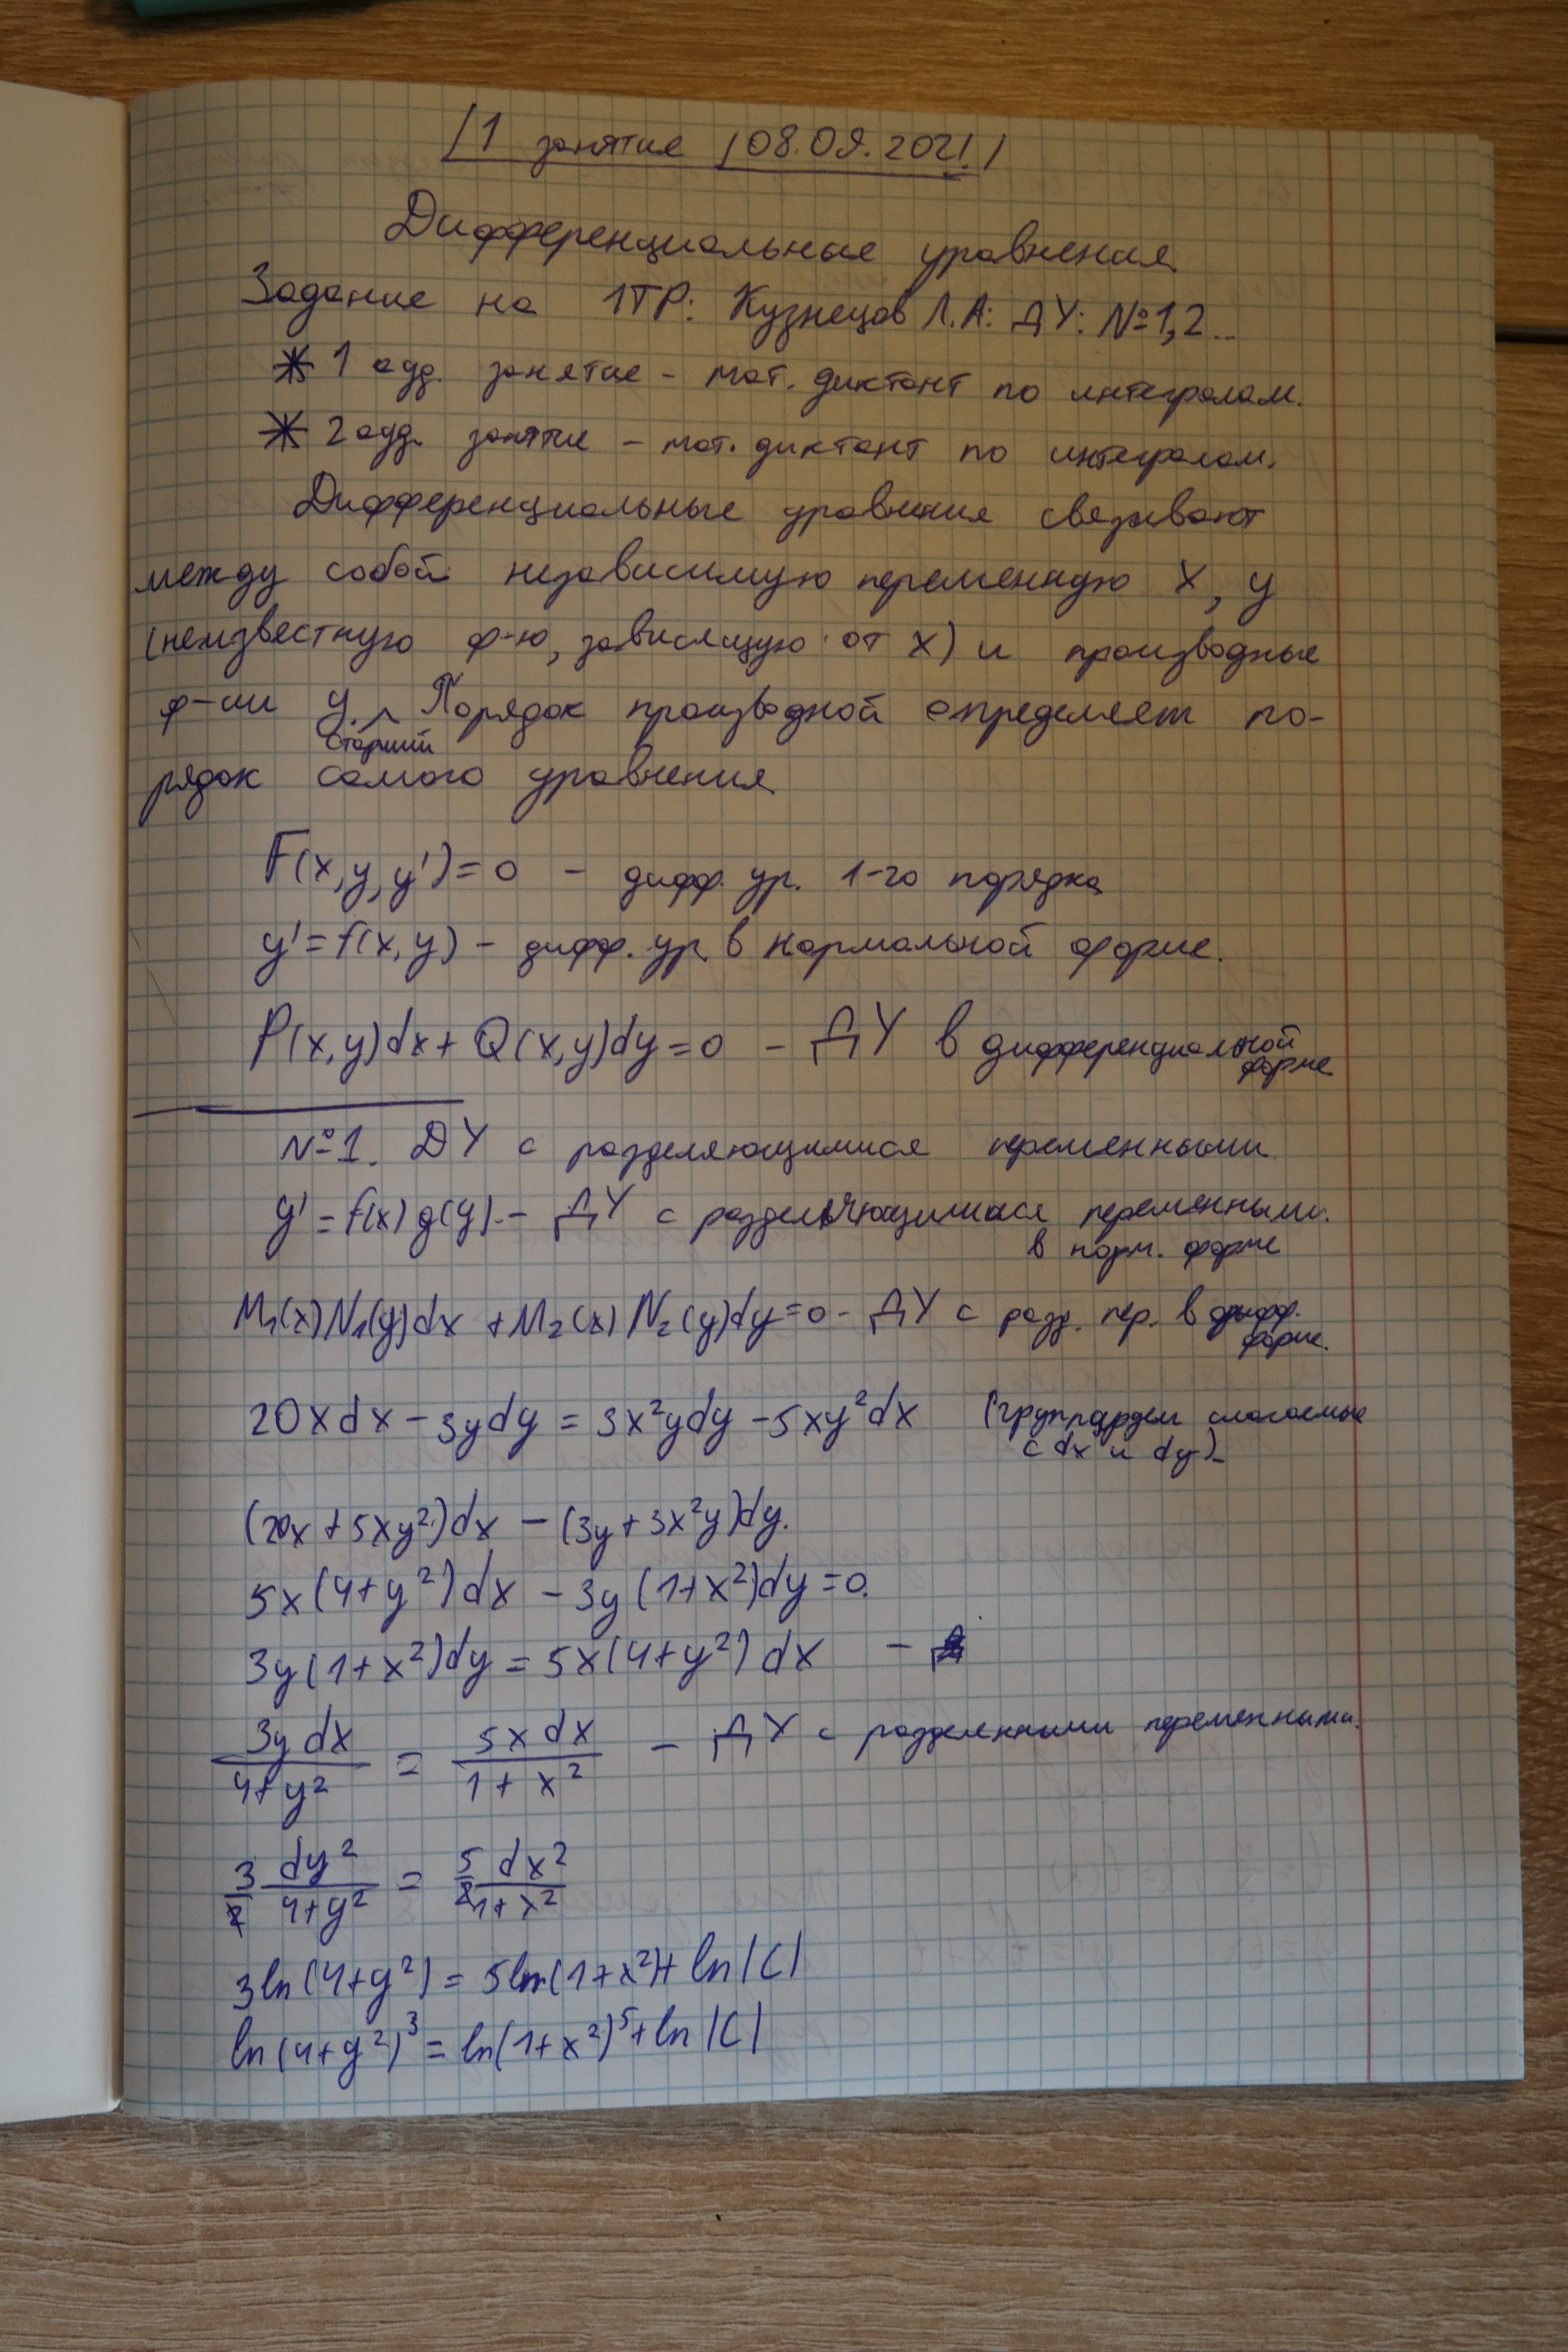 1 занятие 08.09.2021
Дифференциальные уравнения
Задание на 1ТР: Кузнецов Л.А: ДУ: №1,2..
* 1 ауд. занятие – мат. диктант по интегралам.
* 2 ауд. занятие – мат. диктант по интегралам.
Дифференциальные уравнения связывают
между собой независимую переменную x, y
(неизвестную ф-ю, зависящую от x) и производные
ф-ии y. Порядок производной определяет по-
старший
рядок самого уравнения
F(x,y,y')=0 – дифф. ур. 1-го порядка
y'=f(x,y) – дифф. ур. в нормальной форме.
P(x,y)dx+Q(x,y)dy=0 – ДУ в дифференциальной
форме
№1. ДУ с разделяющимися переменными
y'=f(x)g(y) – ДУ с разделяющимися переменными.
в норм. форме
M₁(x)N₁(y)dx+M₂(x)N₂(y)dy=0 – ДУ с разд. пер. в дифф.
форме.
20xdx–3ydy=3x²ydy–5xy²dx (группируем слагаемые
с dx и dy)
(20x+5xy²)dx–(3y+3x²y)dy.
5x(4+y²)dx–3y(1+x²)dy=0.
3y(1+x²)dy=5x(4+y²)dx –
3y dx / 4+y² = 5x dx / 1+x² – ДУ с разделенными переменными.
3/2 dy² / 4+y² = 5/2 dx² / 1+x²
3ln(4+y²)=5ln(1+x²)+ln|C|
ln(4+y²)³=ln(1+x²)⁵+ln|C|